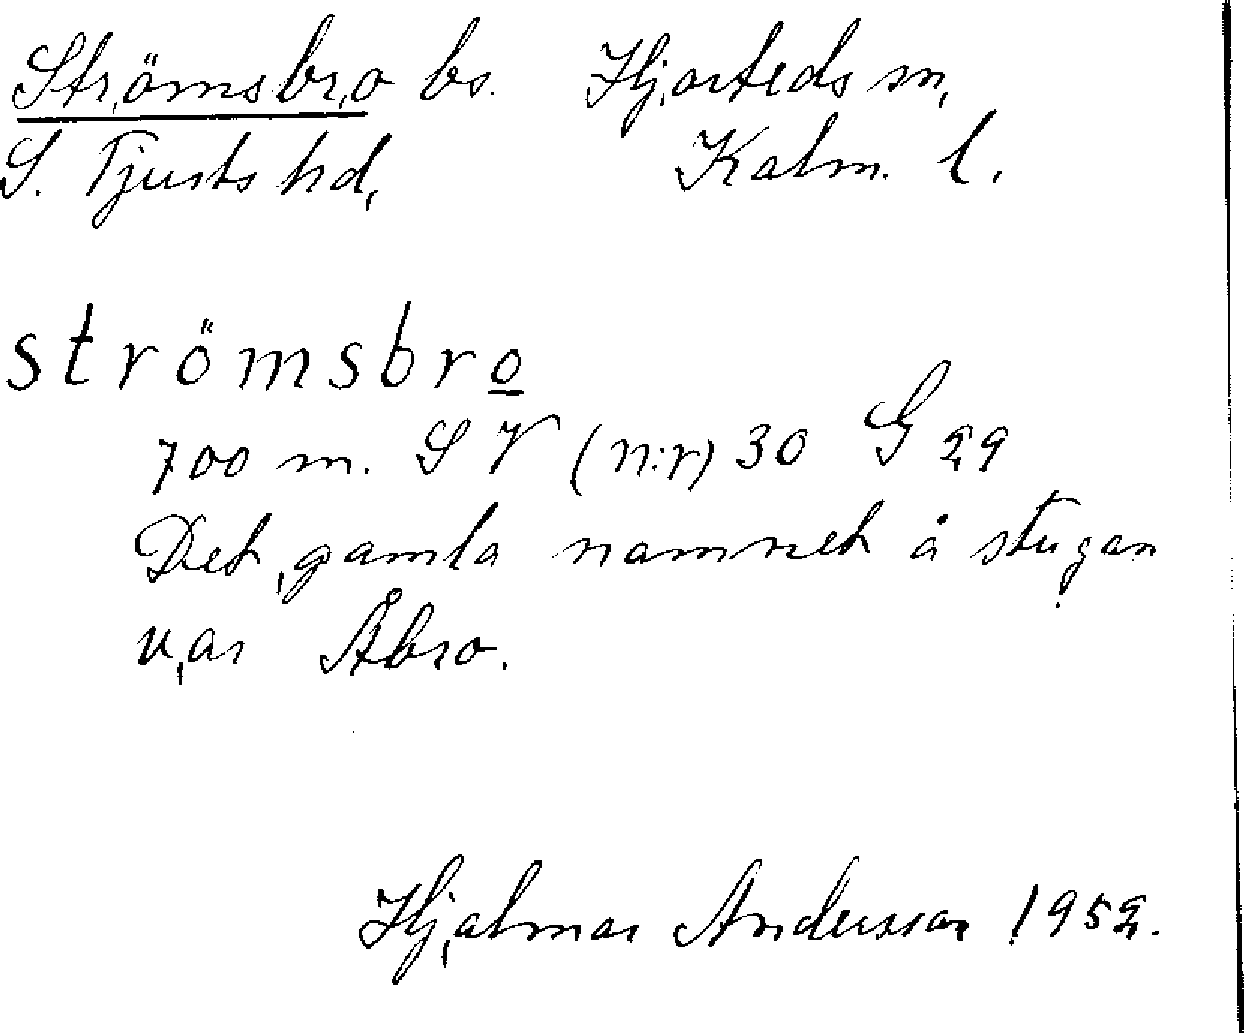 Strömsbro bs. Hjorteds sn,
S. Tjusts hd, Kalm. l.
strömsbro
700 m. SV (n:r) 30 G 29
Det gamla namnet å stugan
var Åbro.
Hjalmar Andersson 1952.